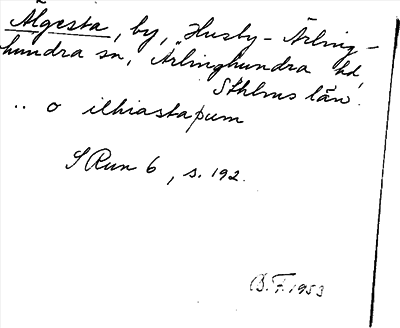 Älgesta, by, Husby-Ärling-
hundra sn, Ärlinghundra hd,
Sthlms län.
.. o ilhiastaþum
SRun 6, s. 192.
B.F. 1953